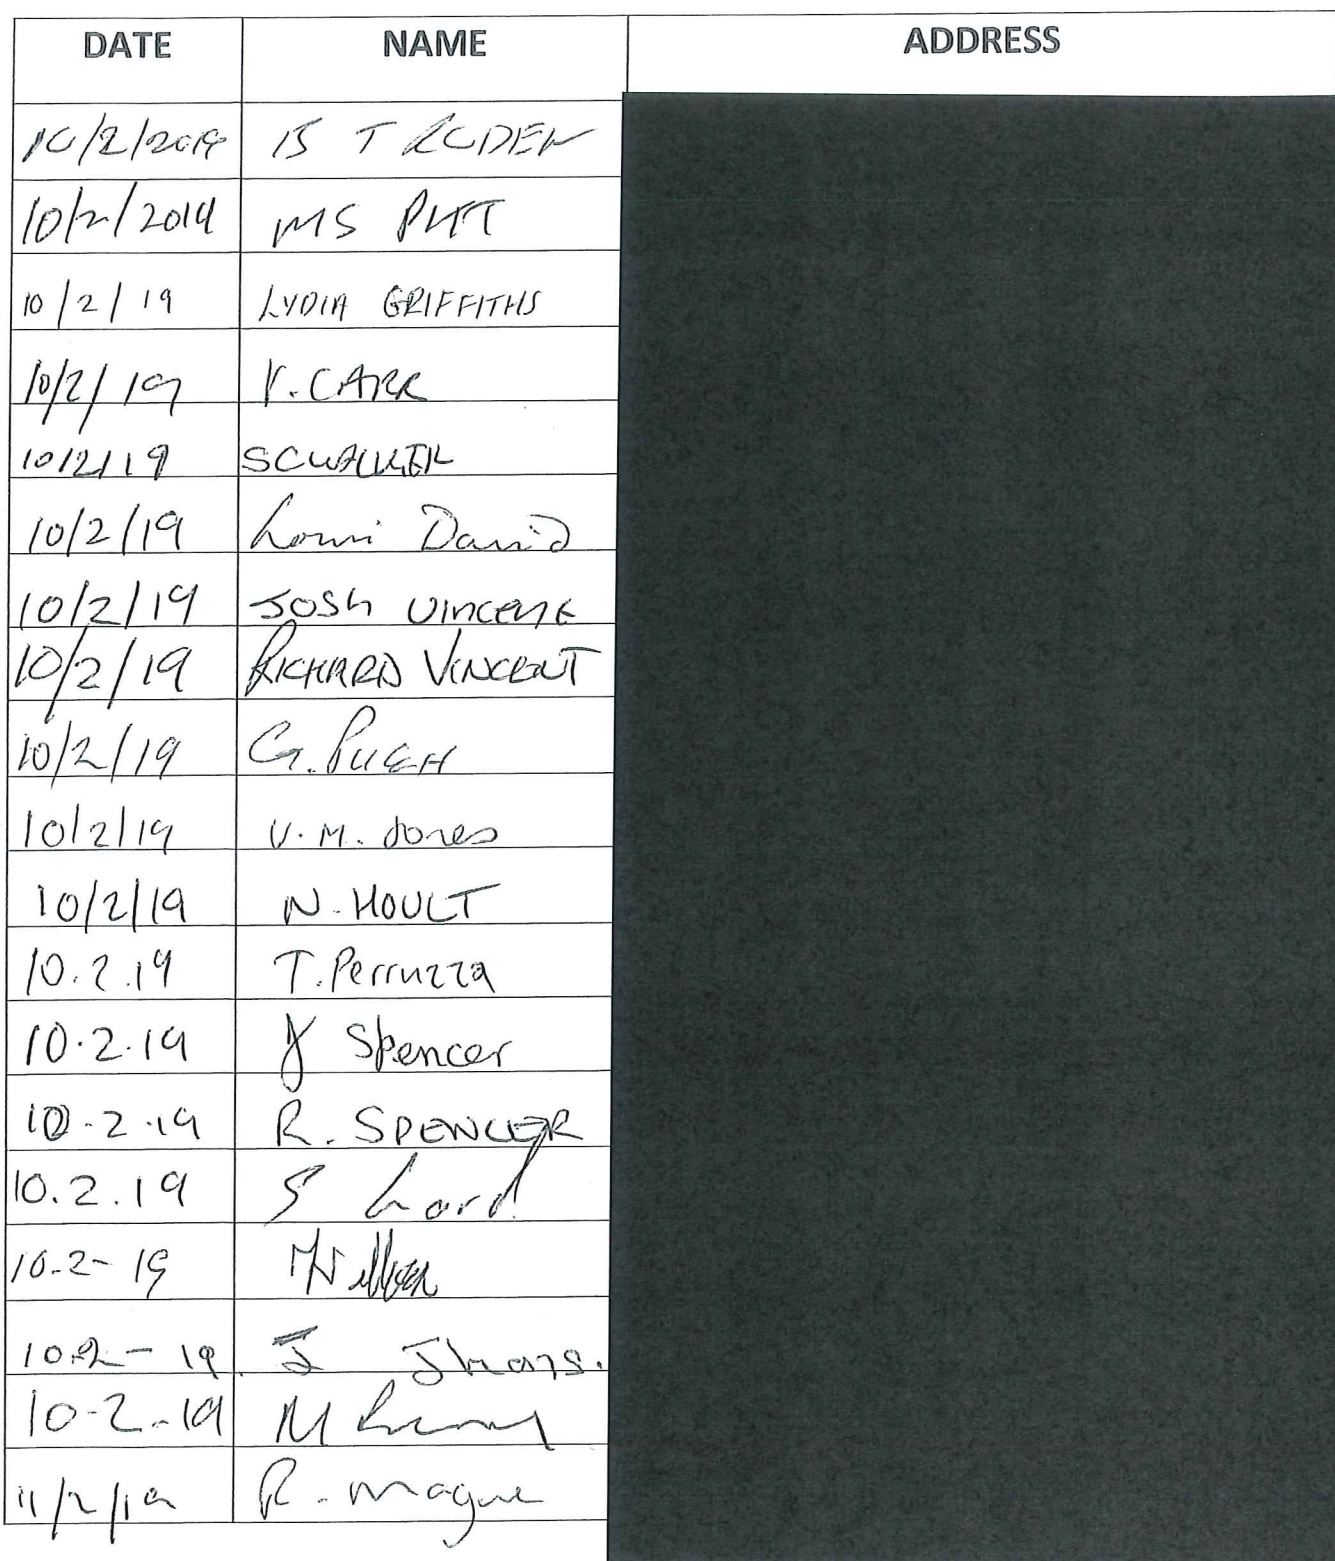 DATE NAME ADDRESS
10/2/2019 B T RODEN
10/2/2019 MS PITT
10/2/19 LYDIA GRIFFITHS
10/2/19 V. CARR
10/2/19 SC WALKER
10/2/19 David
10/2/19 JOSH VINCENT
10/2/19 RICHARD VINCENT
10/2/19 G. PUGH
10/2/19 V. M. Jones
10/2/19 N. HOULT
10.2.19 T. Perruzza
10.2.19 J Spencer
10.2.19 R. SPENCER
10.2.19 S Lord
10-2-19
10.2-19. J
10-2-19 M
11/2/19 R.